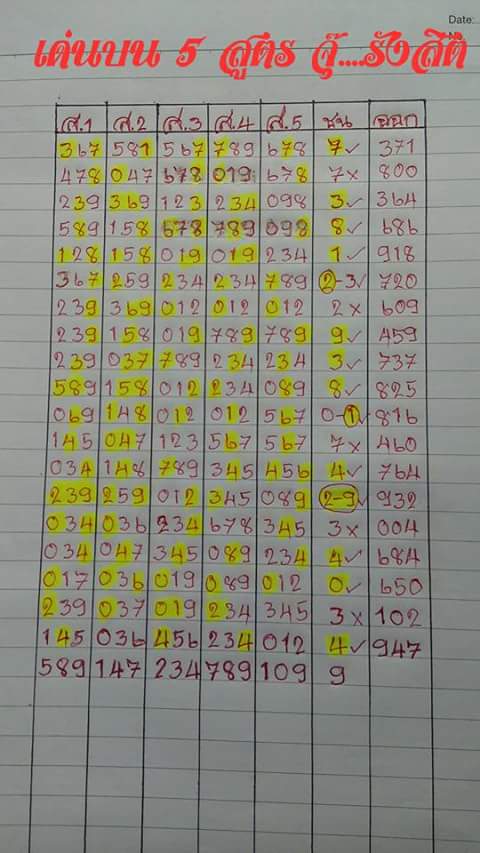 Date:
No.
เด่นบน 5 สูตร จุ้....รังสิต
ส.1 ส.2 ส.3 ส.4 ส.5 ชน ออก
367 581 567 789 678 7✓ 371
478 047 678 019 678 7× 800
239 369 123 234 098 3✓ 364
589 158 678 789 098 8✓ 686
128 158 019 019 234 1✓ 918
367 259 234 234 789 2-3✓ 720
239 369 012 012 012 2× 609
239 158 019 789 789 9✓ 459
239 037 789 234 234 3✓ 737
589 158 012 234 089 8✓ 825
069 148 012 012 567 0-1✓ 816
145 047 123 567 567 7× 460
034 148 789 345 456 4✓ 764
239 259 012 345 089 2-9✓ 932
034 036 234 678 345 3× 004
034 047 345 089 234 4✓ 684
017 036 019 089 012 0✓ 650
239 037 019 234 345 3× 102
145 036 456 234 012 4✓ 947
589 147 234 789 109 9